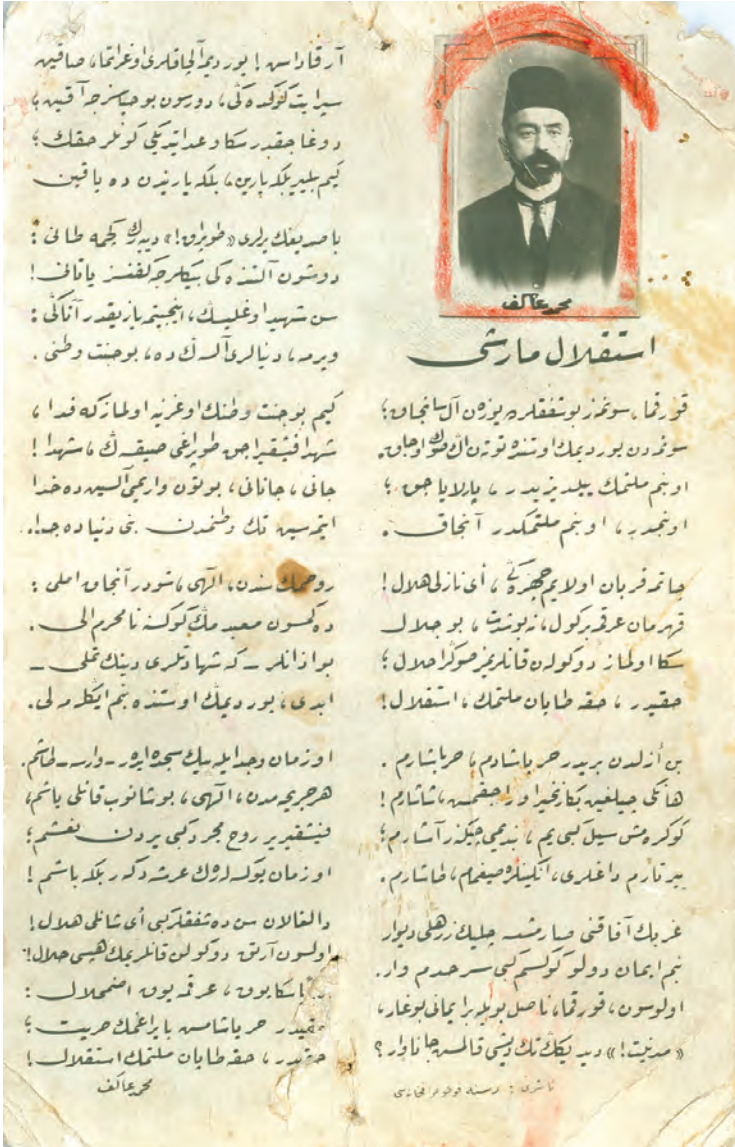 محمد عاكف
استقلال مارشى
قورقما، سونمز بو شفقلرده يوزن آل سانجاق؛
سونمدن يورديمك اوستنده توتن اڭ صوڭ اوجاق.
او بنم ملتمك ييلديزيدر، پارلاياجق؛
او بنمدر، او بنم ملتمكدر آنجاق.
چاتمه قربان اولايم چهره ڭى، أى نازلى هلال!
قهرمان عرقمه بر كول، نه بو شدت، بو جلال
سكا اولماز دوكولن قانلريمز صوڭرا حلال؛
حقيدر، حقه طاپان ملتمك، استقلال!
بن أزلدن بريدر حر ياشادم، حر ياشارم.
هانكى چيلغين بكا زنجير اوراجقمش، شاشارم!
كوكره مش سيل كبى يم، بنديمى چيكنر آشارم؛
ييرتارم داغلرى، انكينلره صيغمام، طاشارم.
غربك آفاقنى صارمشسه چليك زرهلى ديوار
بنم ايمان دولو كوكسم كبى سرحدم وار.
اولوسون، قورقما، ناصل بويله بر ايمانى بوغار،
«مدنيت!» ديديكك تك ديشى قالمش جاناوار؟
آرقاداش! يورديمه آلچاقلرى اوغراتما، صاقين
سپر ايت كوكده كى، دورسون بو حياسزجه آقين؛
دوغاجقدر سكا وعد ايتديكى كونلر حقك؛
كيم بيلير بلكه يارين، بلكه ياريندن ده ياقين
باصديغك يرلرى «طوپراق!» ديه رك كچمه طانى:
دوشون آلتنده كى بيكلرجه كفنسز ياتانى!
سن شهيد اوغليسك، اينجيتمه يازيقدر آتاكى:
ويرمه، دنيالرى آلسه ك ده، بو جنت وطنى.
كيم بو جنت وطنك اوغرينه اولماز كه فدا،
شهدا فيشقيراجق طوپراغى صيقسه ك، شهدا!
جانى، جانانى، بوتون واريمى آلسين ده خدا
ايتمه سين تك وطنمدن بنى دنياده جدا.
روحمك سندن، الهى، شودر آنجاق املى:
دكمسون معبدمك كوكسنه نامحرم الى.
بو اذانلر ـ كه شهادتلرى دينك تملى ـ
ابدى، يورديمك اوستنده بنم ايكله مه لى.
او زمان وجد ايله بيك سجده ايدر ـ وارسه ـ طاشم.
هر جريحه مدن، الهى، بوشانوب قانلى ياشم،
فيشقيرير روح مجرد كبى يردن نعشم؛
او زمان يوكسله رك عرشه دكر بلكه باشم!
دالغالان سن ده شفقلر كبى أى شانلى هلال!
اولسون آرتق دوكولن قانلريمك هپسى حلال!
ابديا سكا يوق، عرقمه يوق اضمحلال:
حقيدر حر ياشامش بايراغمك حريت؛
حقيدر، حقه طاپان ملتمك استقلال!
محمد عاكف